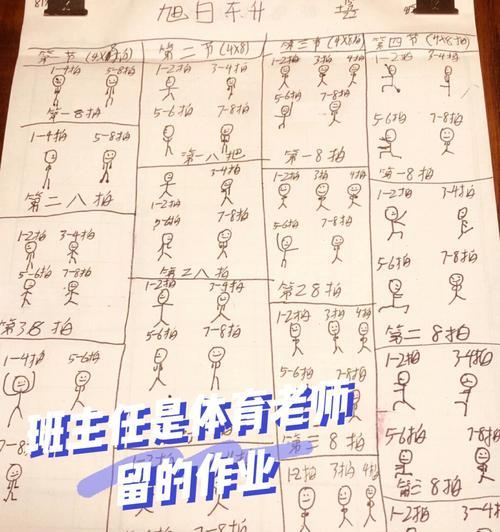 旭日东升
第一节(4X8拍)
1-4拍 5-8拍
第一8拍
1-4拍 5-8拍
第二八拍
1-2拍 3-4拍
5-6拍 7-8拍
第38拍
1-4拍 5-6拍
第二节(4X8)
1-2拍 3-4拍
5-6拍 7-8拍
第一八把
3-4拍
1-2拍
5-6拍 7-8拍
第二八拍
1-2拍 3-4拍
5-6拍 7-8拍
第三节(4X8拍)
1-2拍 3拍 4拍
5-6拍 7-8拍
第一8拍
1-2拍 3拍 4拍
5-6拍 7-8拍
第28拍
1-2拍 3拍 4拍
5-6拍 7-8拍
第三8拍
1-2拍 3拍 4拍
第四节(4X8拍)
1-2拍 3-4拍
5-6拍 7-8拍
第一8拍
1-2拍 3-4拍
5-6拍 7-8拍
第二8拍
1-2拍 3-4拍
5-6拍 7-8拍
第三8拍
1-2拍 3-4拍
班主任是体育老师
留的作业